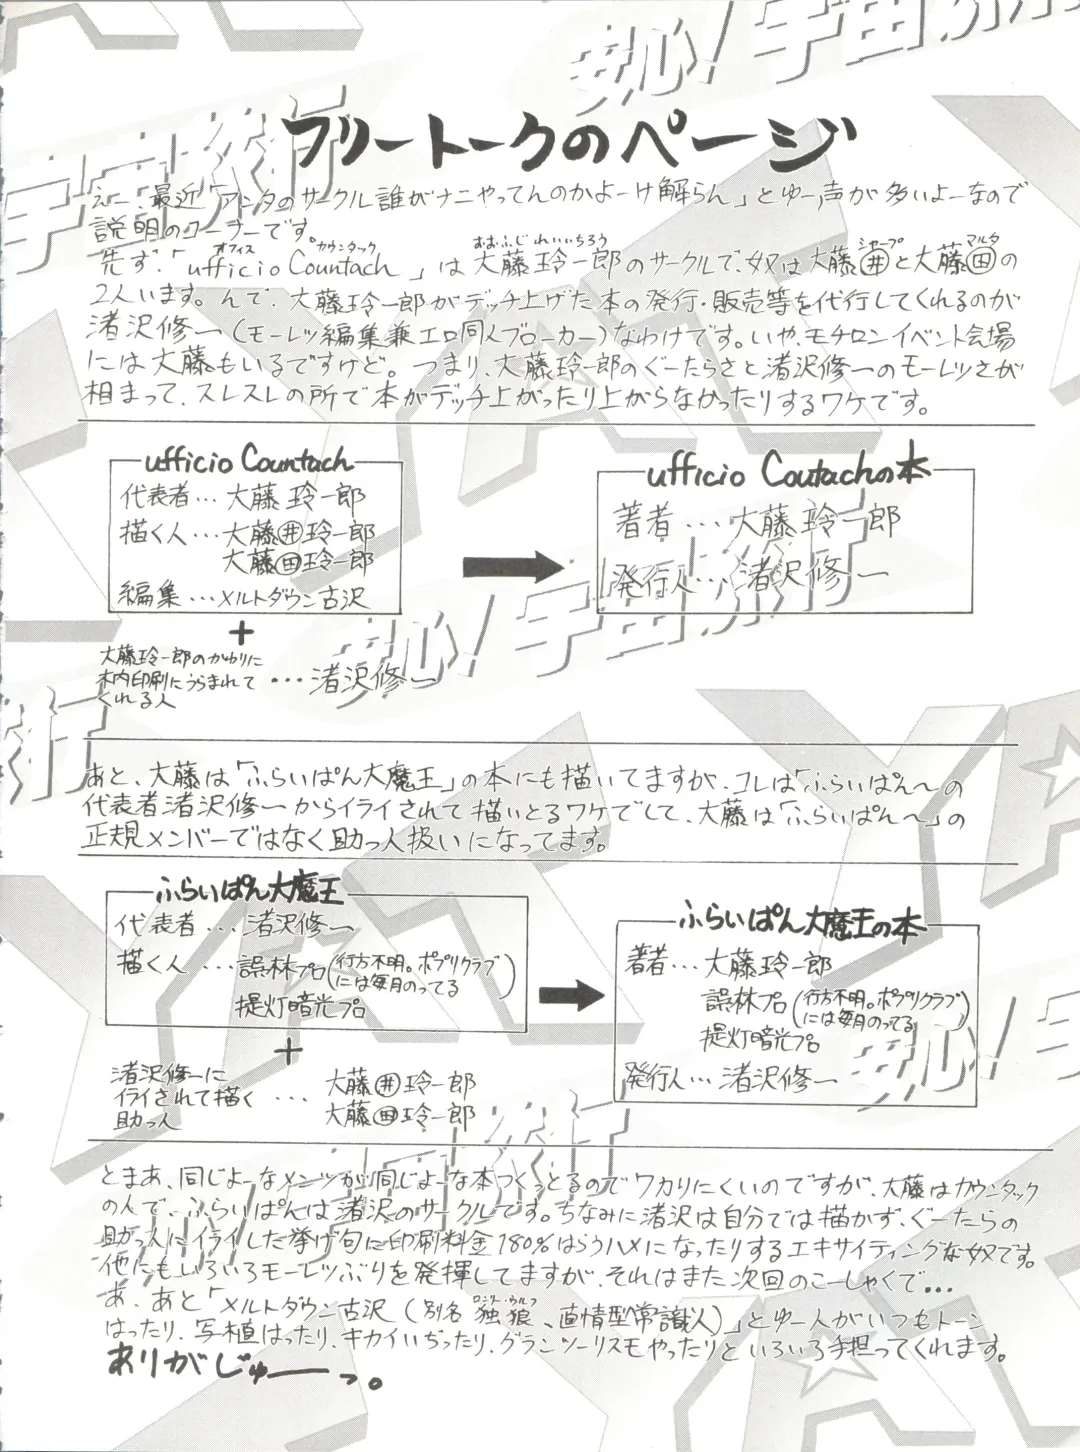 フリートークのページ
えー、最近「アンタのサークル誰がナニやってんのかよーけ解らん」とゆー声が多いよーなので
説明のコーナーです。
先ず、「ufficio Countach」は大藤玲一郎のサークルで、奴は大藤㊤と大藤㊥の
オフィス カウンタック おおふじれいいちろう シャープ マルタ
2人います。んで、大藤玲一郎がデッチ上げた本の発行・販売等を代行してくれるのが
渚沢修一(モーレツ編集兼エロ同人ブローカー)なわけです。いや、モチロンイベント会場
には大藤もいるですけど。つまり、大藤玲一郎のぐーたらさと渚沢修一のモーレツさが
相まって、スレスレの所で本がデッチ上がったり上がらなかったりするワケです。
ufficio Countach
代表者…大藤玲一郎
描く人…大藤(井)玲一郎
大藤(田)玲一郎
編集…メルトダウン古沢
+
大藤玲一郎のかわりに
木内印刷にうらまれて
くれる人
…渚沢修一
ufficio Coutachの本
著者…大藤玲一郎
発行人…渚沢修一
あと、大藤は「ふらいぱん大魔王」の本にも描いてますが、コレは「ふらいぱん〜の
代表者渚沢修一からイライされて描いとるワケでして、大藤は「ふらいぱん〜」の
正規メンバーではなく助っ人扱いになってます。
ふらいぱん大魔王
代表者…渚沢修一
描く人…誤林プロ(行方不明。ポプリクラブ
には毎月のってる)
提灯暗光プロ
+
渚沢修一に
イライされて描く
助っ人
…大藤(井)玲一郎
大藤(田)玲一郎
ふらいぱん大魔王の本
著者…大藤玲一郎
誤林プロ(行方不明。ポプリクラブ
には毎月のってる)
提灯暗光プロ
発行人…渚沢修一
とまあ、同じよーなメンツが同じよーな本つくっとるのでワカりにくいのですが、大藤はカウンタック
の人で、ふらいぱんは渚沢のサークルです。ちなみに渚沢は自分では描かず、ぐーたらの
助っ人にイライした挙げ句に印刷料金180%はらうハメになったりするエキサイティングな奴です。
他にもいろいろモーレツぶりを発揮してますが、それはまた次回のこーしゃくで…
あ、あと「メルトダウン古沢(別名 独狼、直情型常識人)」とゆー人がいつもトーン
ロンリーウルフ
はったり、写植はったり、キカイいぢったり、グランツーリスモやったりといろいろ手担ってくれます。
ありがじゅーっ。
安心!宇宙旅行
YAT